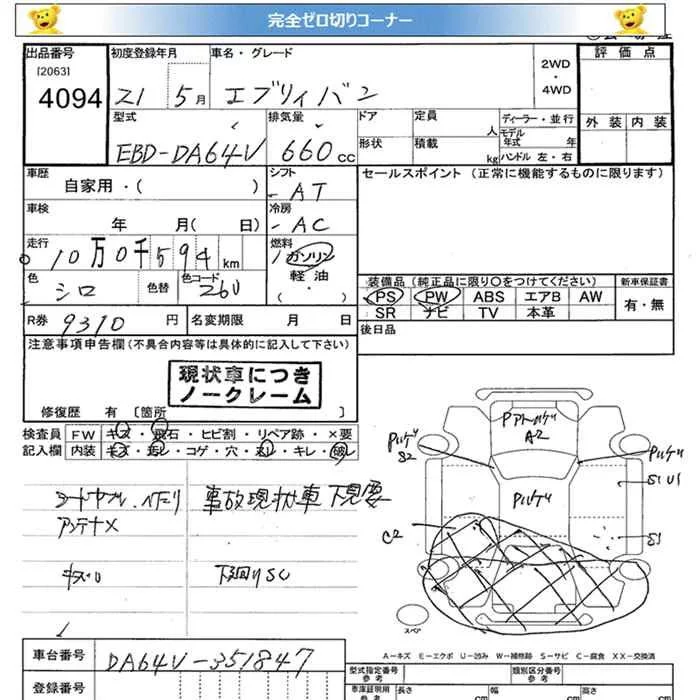 完全ゼロ切りコーナー
出品番号 初度登録年月 車名・グレード 2WD・4WD 評価点
[2063]
4094 21 5月 エブリィバン
型式 排気量 ドア 定員 人 ディーラー・並行 外装 内装
モデル年式 年
EBD-DA64V 660cc 形状 積載 kg ハンドル 左・右
車歴 シフト セールスポイント (正常に機能するものに限ります)
自家用・( ) AT
車検 冷房
年 月( 日) AC
走行 燃料
10万0千594km ガソリン
色 色替 色コード 軽油
シロ 26U (・) 装備品(純正品に限り〇をつけてください) 新車保証書
PS PW ABS エアB AW 有・無
R券 9310円 名変期限 月 日 SR ナビ TV 本革
後日品
注意事項申告欄(不具合内容等は具体的に記入して下さい)
現状車につき
ノークレーム
修復歴 有 [箇所 ]
検査員 FW キズ・飛石・ヒビ割・リペア跡・×要
記入欄 内装
事故現状車 下見要
アンテナX
キズ 下廻りSC
Pアトハゲ
A2
Pハゲ
S2
Pハゲ
Pハゲ
S1 U1
C2
S1
スペア
A−キズ E−エクボ U−凹み W−補修跡 S−サビ C−腐食 XX−交換済
車台番号 DA64V-351847
登録番号
型式指定番号 参考 類別区分番号 参考
車庫証明用 参考 長さ cm 幅 cm 高さ cm